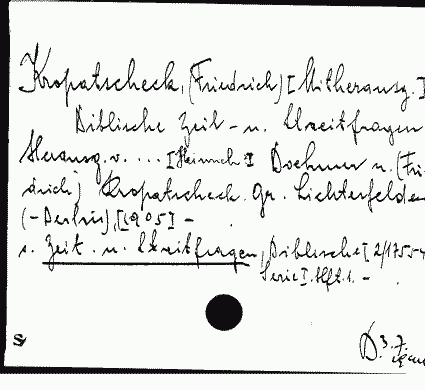 Kropatscheck, (Friedrich) [Mitherausg.]
Biblische Zeit- u. Streitfragen
Herausg. v. ... [Heinrich] Boehmer u. (Frie-
drich) Kropatscheck. Gr. Lichterfelde
(-Berlin), [1905] -
s. Zeit- u. Streitfragen, Biblische [2/1755
Serie I. Hft. 1. -
S
D. 3. 7.